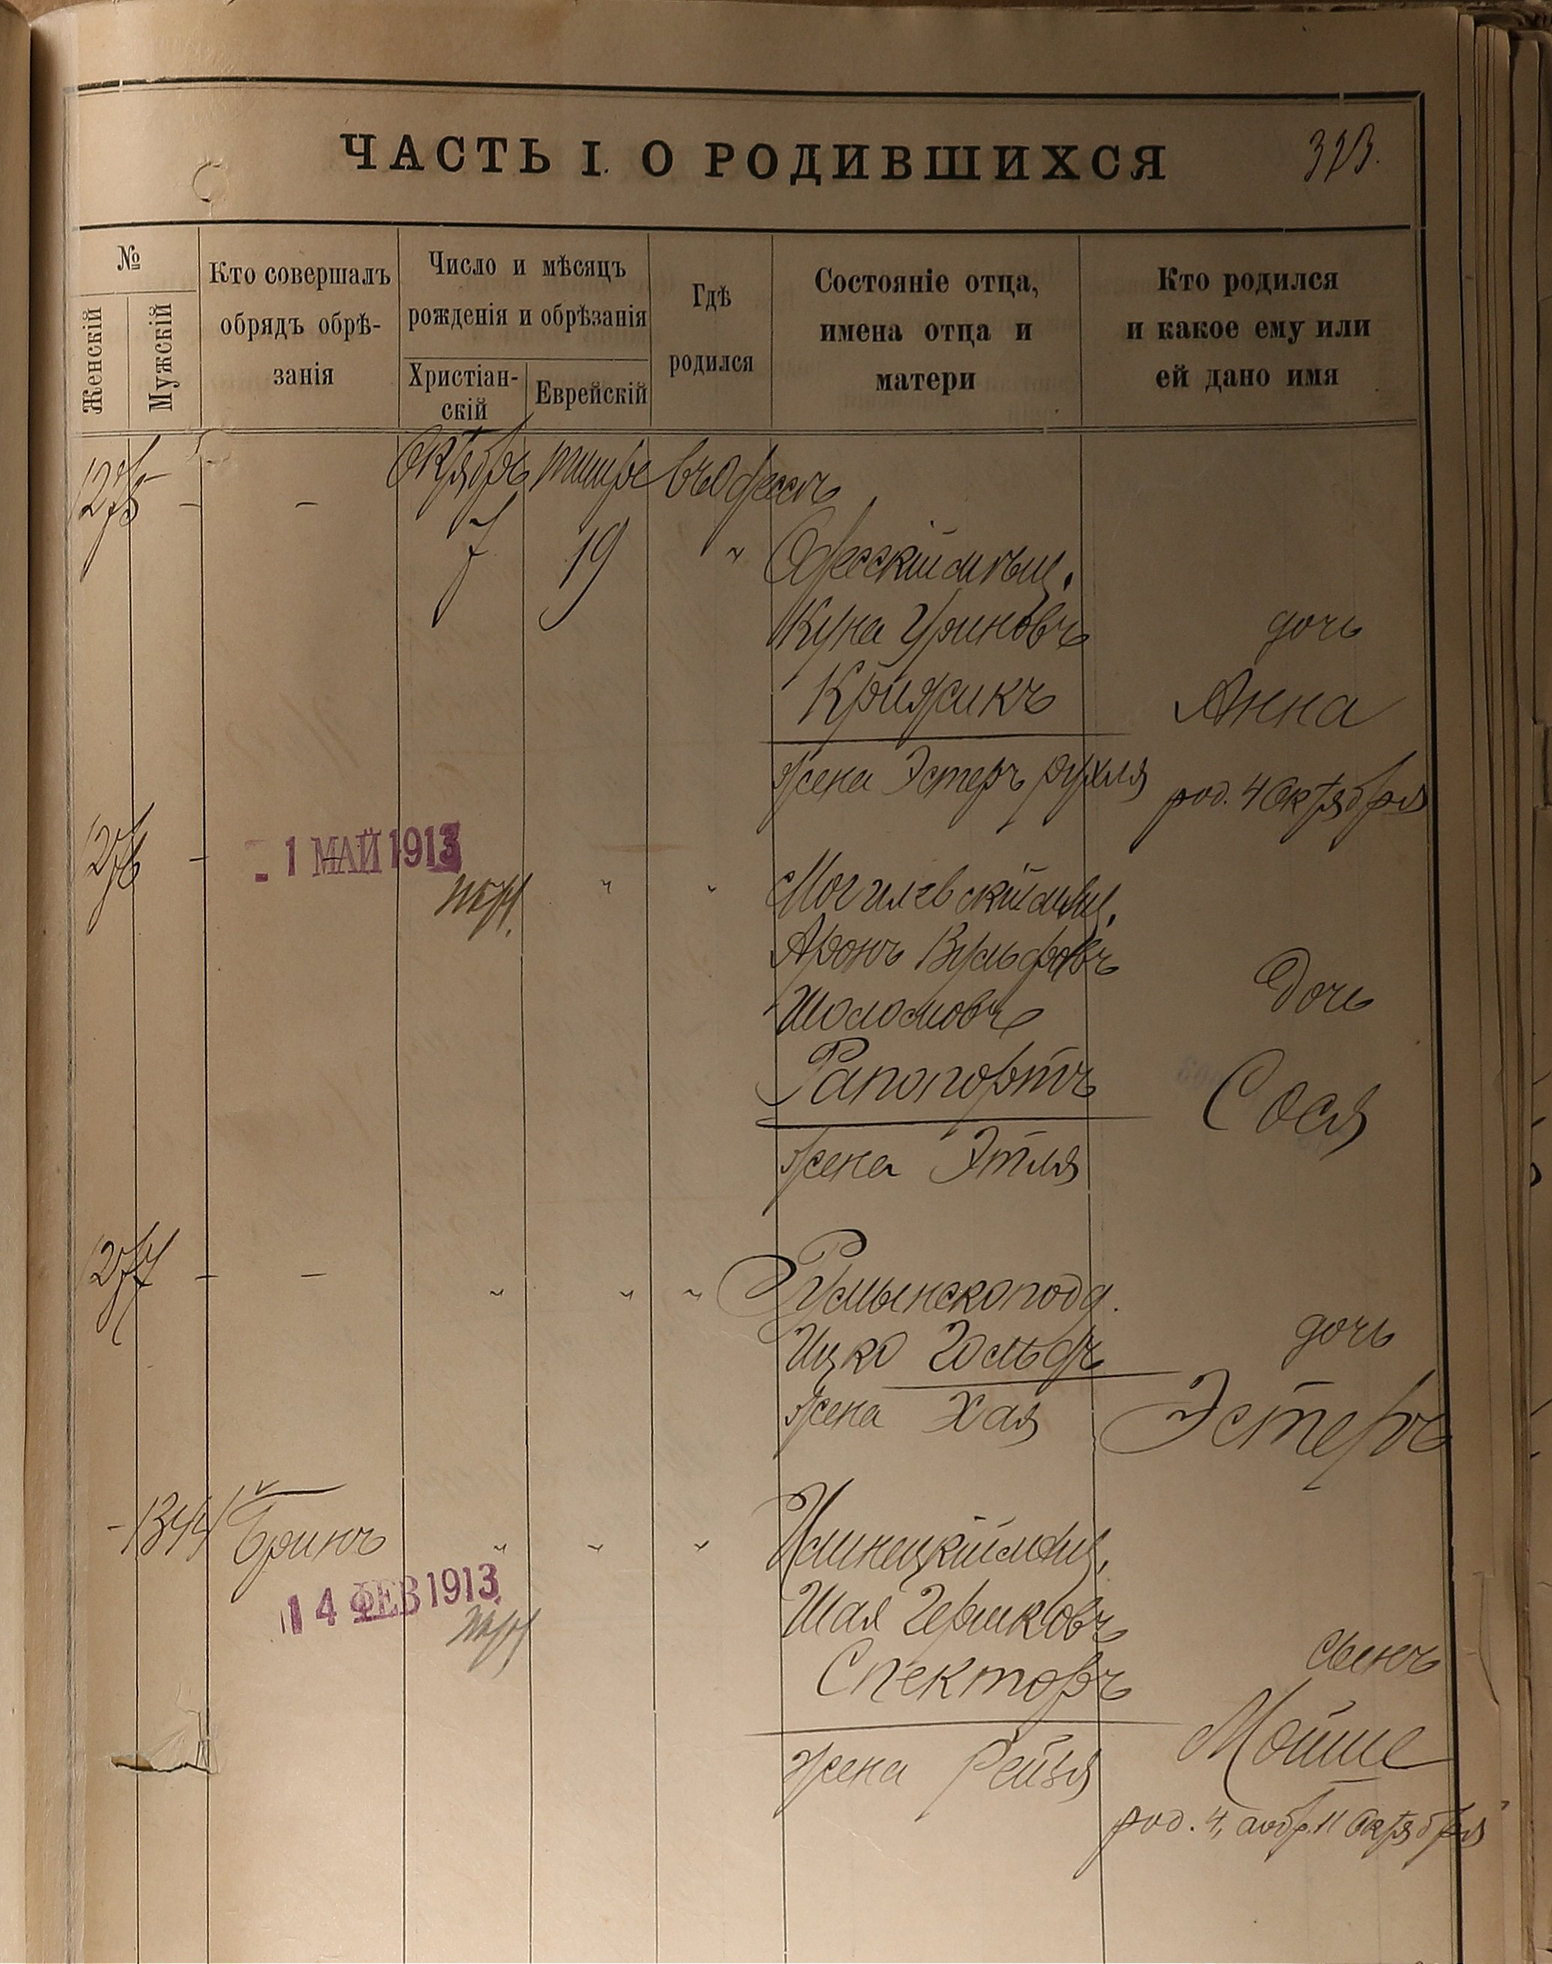 ЧАСТЬ I. О РОДИВШИХСЯ
323.
№
Женскій
Мужскій
Кто совершалъ
обрядъ обрѣ-
занія
Число и мѣсяцъ
рожденія и обрѣзанія
Христіан-
скій
Еврейскій
Гдѣ
родился
Состояніе отца,
имена отца и
матери
Кто родился
и какое ему или
ей дано имя
Октябрь тишре въ Одессѣ
1275 - - 7 19 " Одесскій мѣщ.
Куна Уриновъ
Крижикъ
жена Эстеръ Рухля
дочь
Анна
род. 4 Октября
1276 - - " "
1 МАЙ 1913
Могилевскій мѣщ.
Аронъ Вульфовъ
Шоломовъ
Рапопортъ
жена Этля
дочь
Сося
1277 - - " " "
Румынскоподд.
Ицко Гольдъ
жена Хая
дочь
Эстеръ
- 1344 Бринъ " " "
14 ФЕВ 1913
Илинецкій мѣщ.
Шая Гершковъ
Спекторъ
жена Рейзя
сынъ
Мойше
род. 4, а обр. 11 Октября